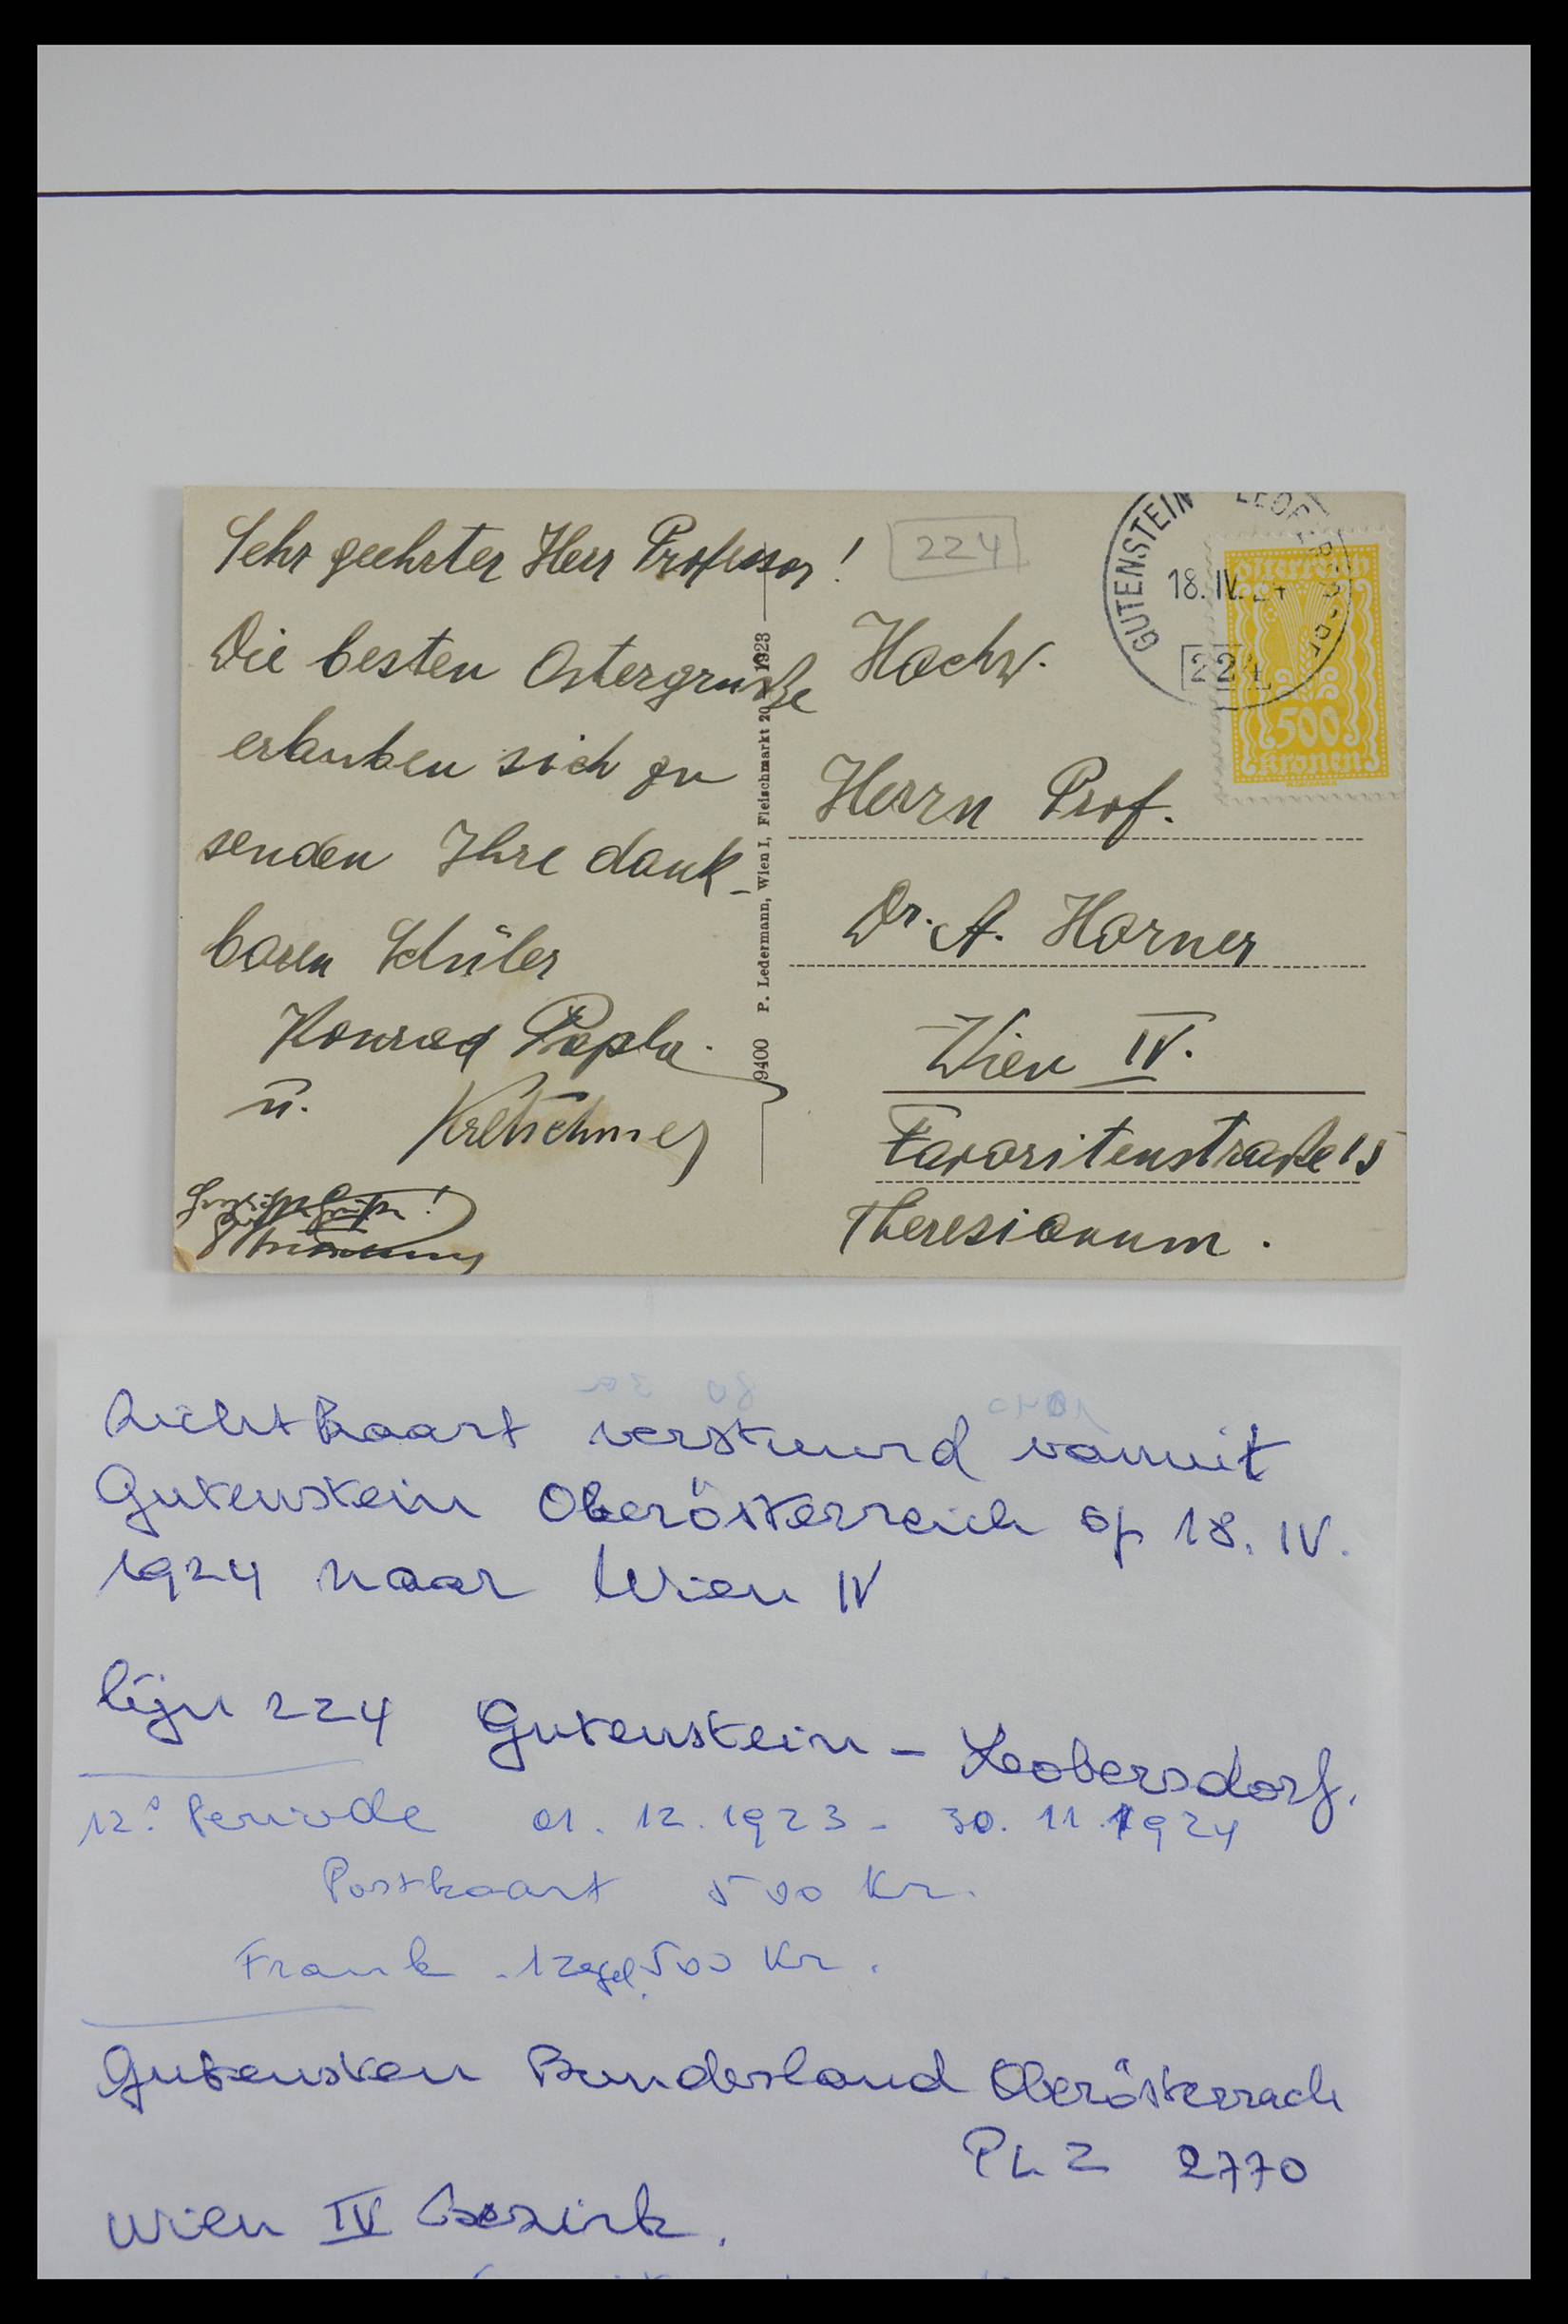 Sehr geehrter Herr Professor!
Die besten Ostergrüße
erlauben sich zu
senden Ihre dank-
baren Schüler
Konrad Papla.
u.
Kretschmer
9400 P. Ledermann, Wien I, Fleischmarkt 20 1923
224
GUTENSTEIN LEOBERSDORF
18.IV.24
224
Österreich
500
Kronen
Hochw.
Herrn Prof.
Dr. A. Horner
Wien IV.
Favoritenstraße 15
Theresianum.
Zichtkaart verstuurd vanuit
Gutenstein Oberösterreich op 18. IV.
1924 naar Wien IV
lijn 224 Gutenstein - Leobersdorf.
12e Periode 01.12.1923 - 30.11.1924
Postkaart 500 Kr.
Frank. 1 zegel 500 Kr.
Gutenstein Bundesland Oberösterreich
PLZ 2770
Wien IV Bezirk.